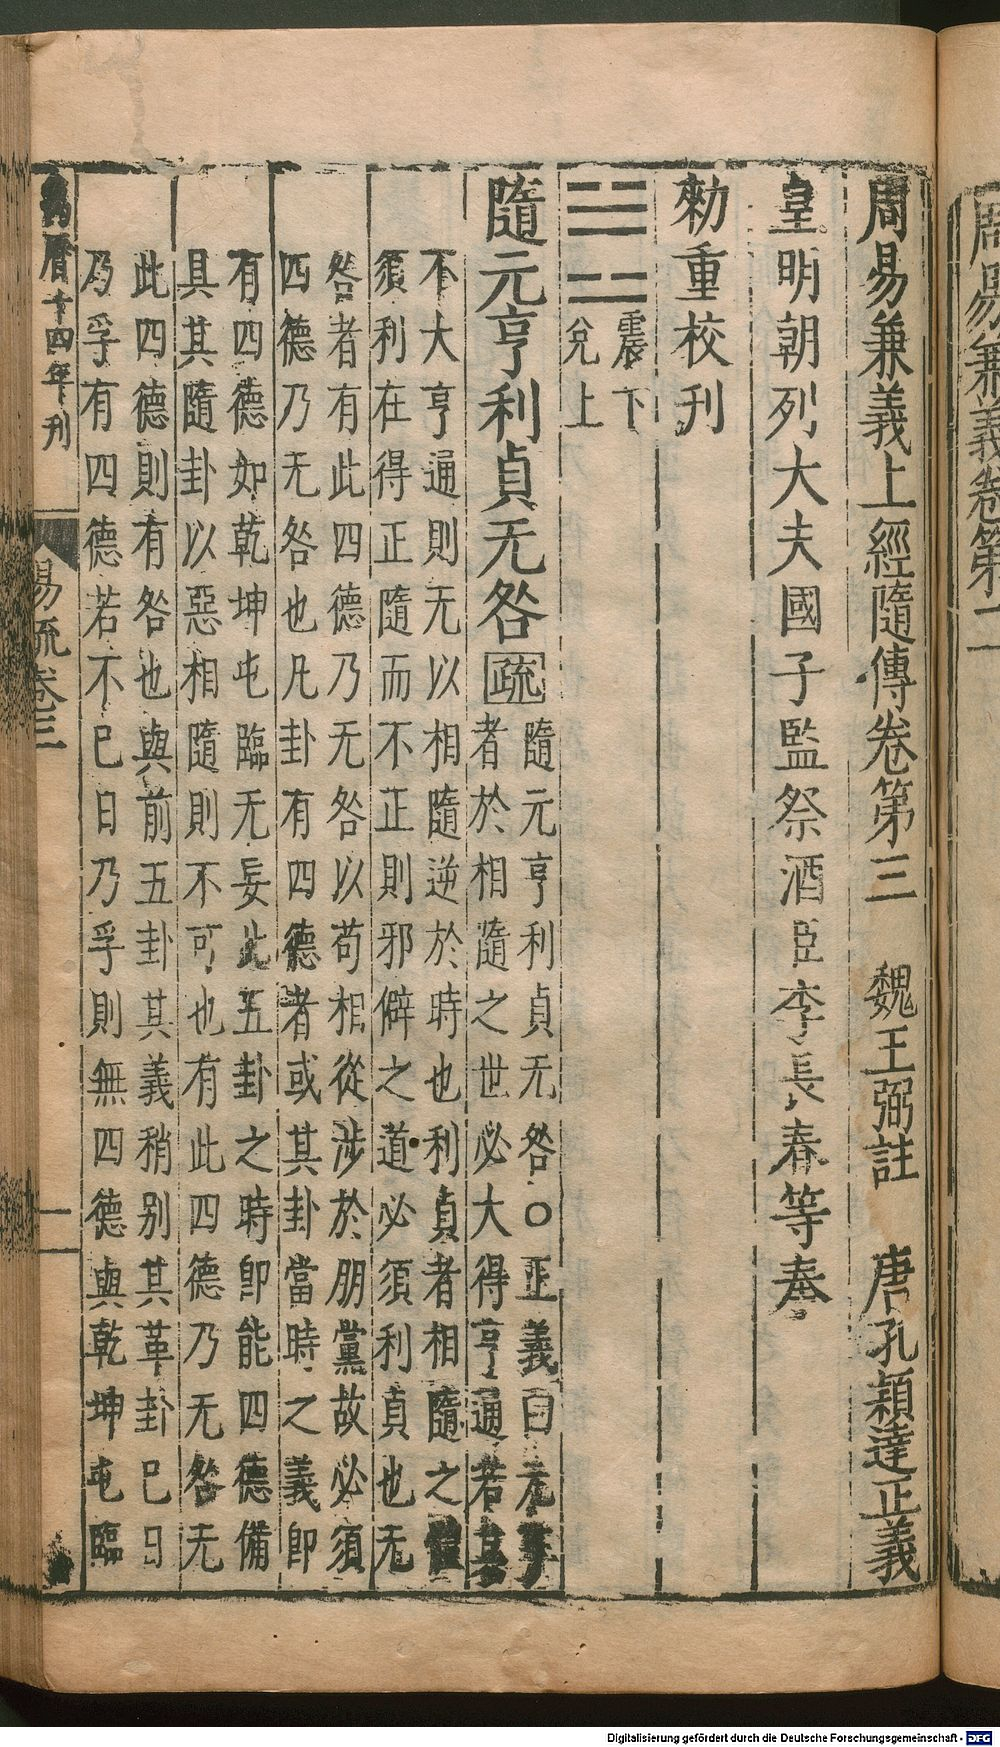 周易兼義卷第二
周易兼義上經隨傳卷第三　魏王弼註　唐孔穎達正義
皇明朝列大夫國子監祭酒臣李長春等奉
勑重校刊
震下
兌上
隨元亨利貞无咎疏隨元亨利貞无咎○正義曰元亨
者於相隨之世必大得亨通若其
不大亨通則无以相隨逆於時也利貞者相隨之體
須利在得正隨而不正則邪僻之道必須利貞也无
咎者有此四德乃无咎以苟相從涉於朋黨故必須
四德乃无咎也凡卦有四德者或其卦當時之義即
有四德如乾坤屯臨无妄此五卦之時即能四德備
具其隨卦以惡相隨則不可也有此四德乃无咎无
此四德則有咎也與前五卦其義稍别其革卦巳日
乃孚有四德若不巳日乃孚則無四德與乾坤屯臨
萬曆十四年刊
易疏卷三
一
Digitalisierung gefördert durch die Deutsche Forschungsgemeinschaft - DFG